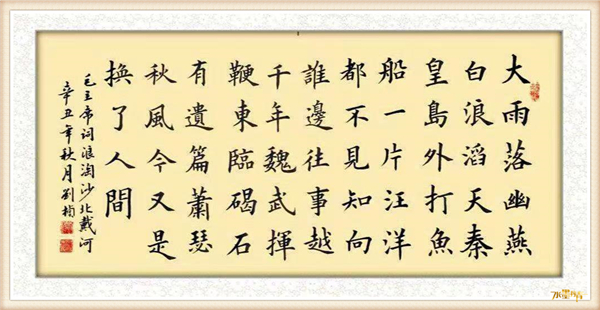 大雨落幽燕
白浪滔天秦
皇島外打魚
船一片汪洋
都不見知向
誰邊往事越
千年魏武揮
鞭東臨碣石
有遺篇蕭瑟
秋風今又是
換了人間
毛主席詞浪淘沙北戴河
辛丑年秋月劉楠